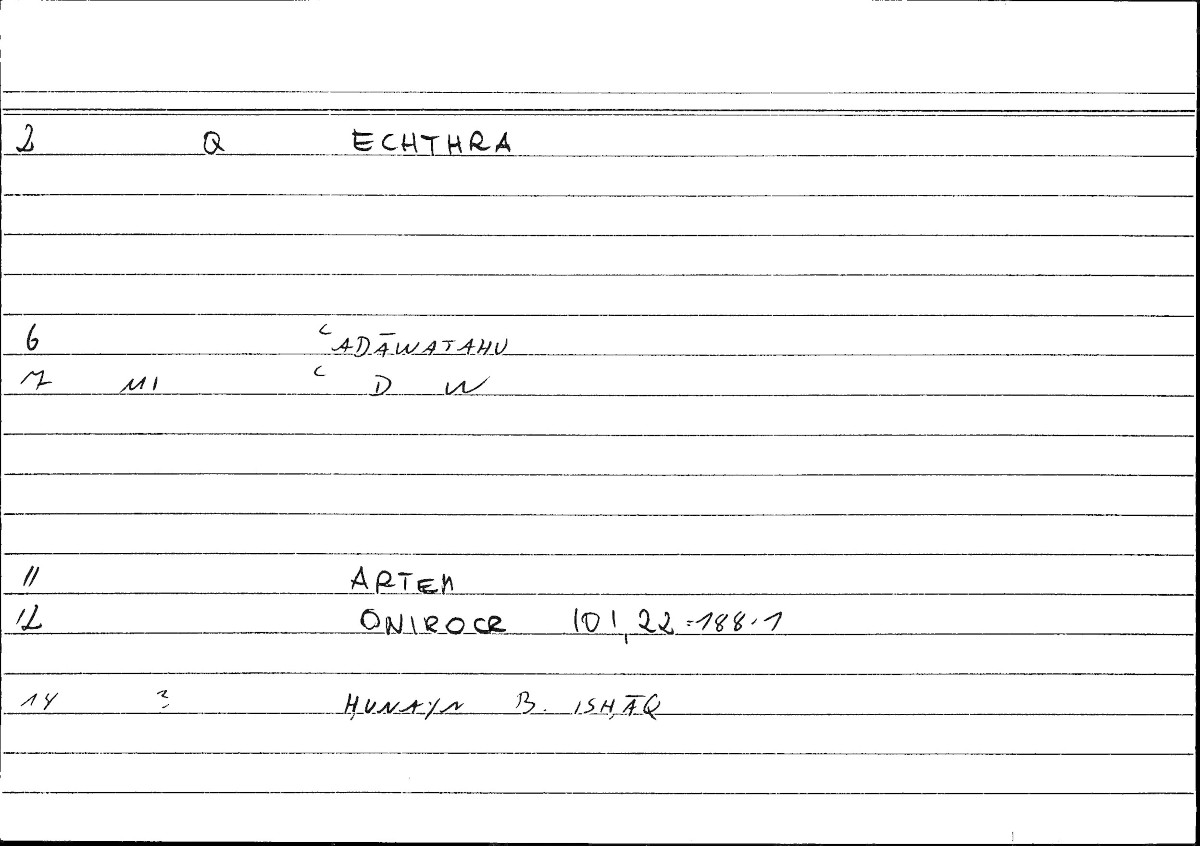 2 Q ECHTHRA
6 ʿADĀWATAHU
7 M1 ʿ D W
11 ARTEM
12 ONIROCR 101,22=188.1
14 ? ḤUNAYN B. ISḤĀQ